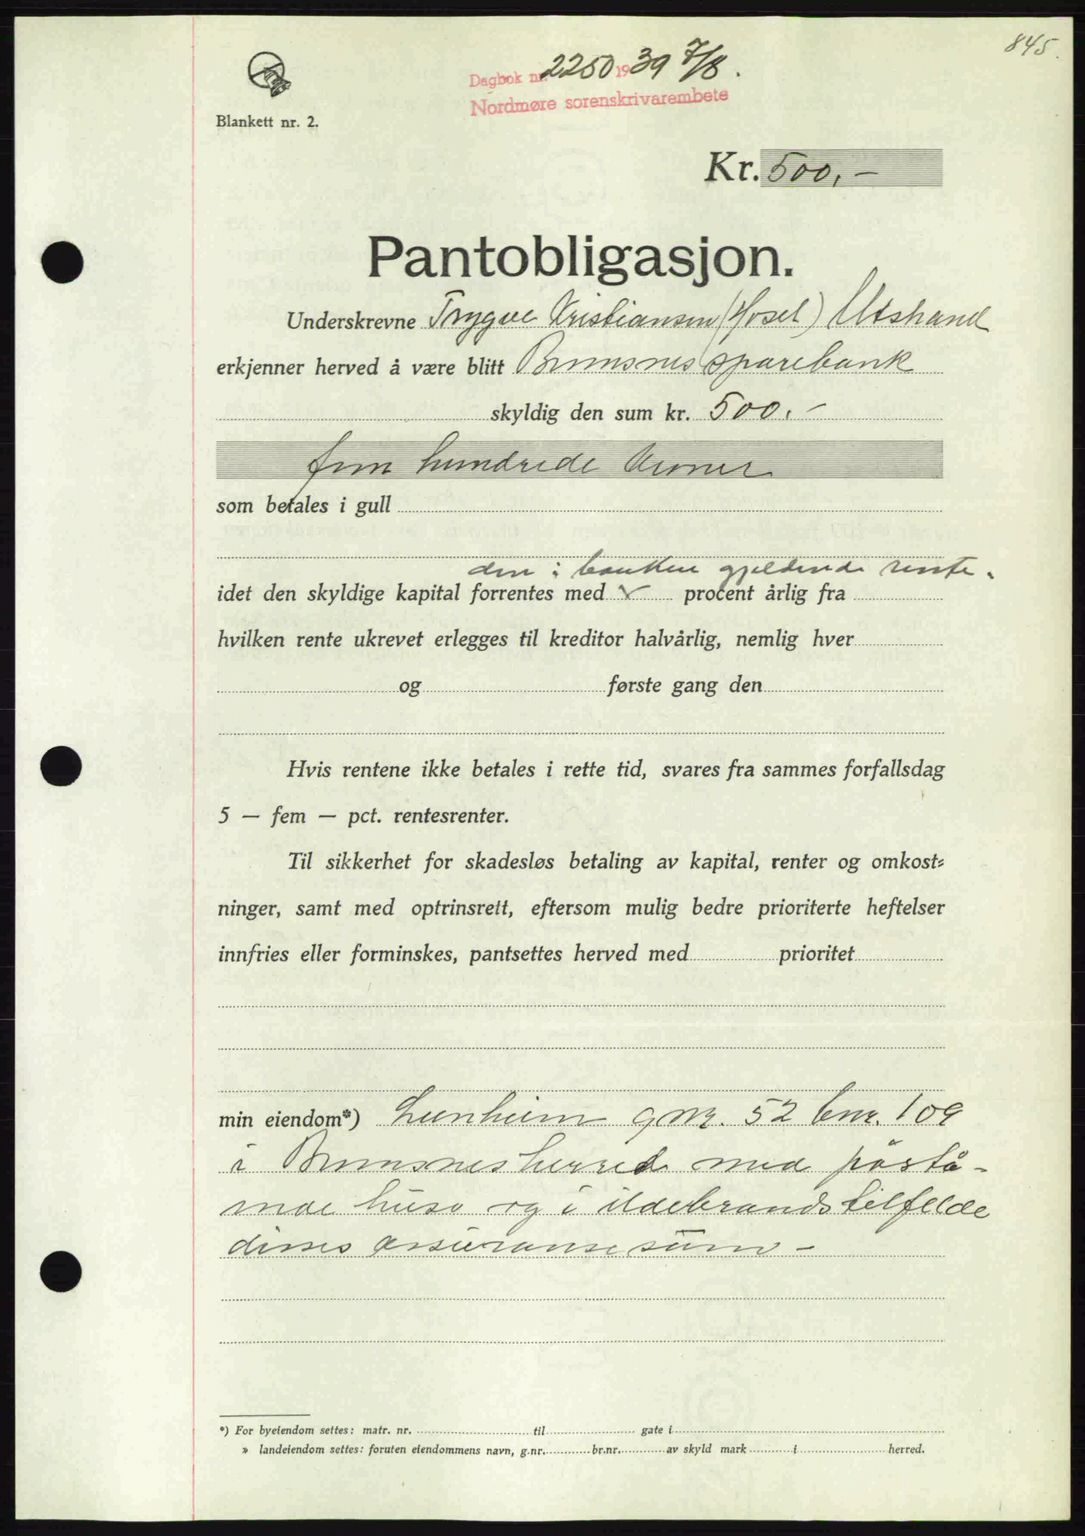 845.
Dagbok nr. 2250 1939 7/8.
Nordmøre sorenskrivarembete
Blankett nr. 2.
Kr. 500,-
Pantobligasjon.
Underskrevne Trygve Kristiansen (Hosel) Utstrand
erkjenner herved å være blitt Bremsnes sparebank
skyldig den sum kr. 500.-
fem hundrede kroner
som betales i gull
den i banken gjeldende rente.
idet den skyldige kapital forrentes med procent årlig fra
hvilken rente ukrevet erlegges til kreditor halvårlig, nemlig hver
og første gang den
Hvis rentene ikke betales i rette tid, svares fra sammes forfallsdag
5 — fem — pct. rentesrenter.
Til sikkerhet for skadesløs betaling av kapital, renter og omkost-
ninger, samt med optrinsrett, eftersom mulig bedre prioriterte heftelser
innfries eller forminskes, pantsettes herved med prioritet
min eiendom*) Lunheim gnr. 52 bnr. 109
i Bremsnes herred med påstå-
ende huse og i ildebrandstilfelde
disses assuransesum -
*) For byeiendom settes: matr. nr. til gate i
» landeiendom settes: foruten eiendommens navn, g.nr. br.nr. av skyld mark i herred.